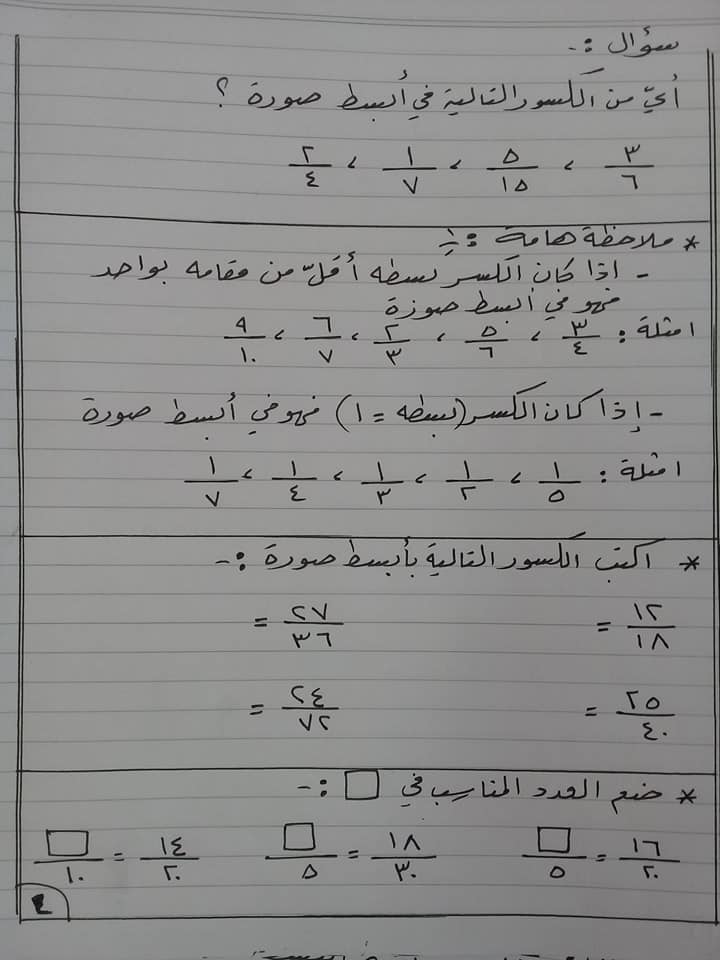 سؤال :-
أيّ من الكسور التالية في أبسط صورة ؟
٣/٦ ، ٥/١٥ ، ١/٧ ، ٢/٤
* ملاحظة هامة :-
- اذا كان الكسر بسطه أقلّ من مقامه بواحد
فهو في أبسط صورة
امثلة : ٣/٤ ، ٥/٦ ، ٢/٣ ، ٦/٧ ، ٩/١٠
- إذا كان الكسر (بسطه = ١) فهو في أبسط صورة
امثلة : ١/٥ ، ١/٢ ، ١/٣ ، ١/٤ ، ١/٧
* اكتب الكسور التالية بأبسط صورة :-
١٢/١٨ = ٢٧/٣٦ =
٢٥/٤٠ = ٢٤/٧٢ =
* ضع العدد المناسب في □ :-
١٦/٢٠ = □/٥ ١٨/٣٠ = □/٥ ١٤/٢٠ = □/١٠
٤